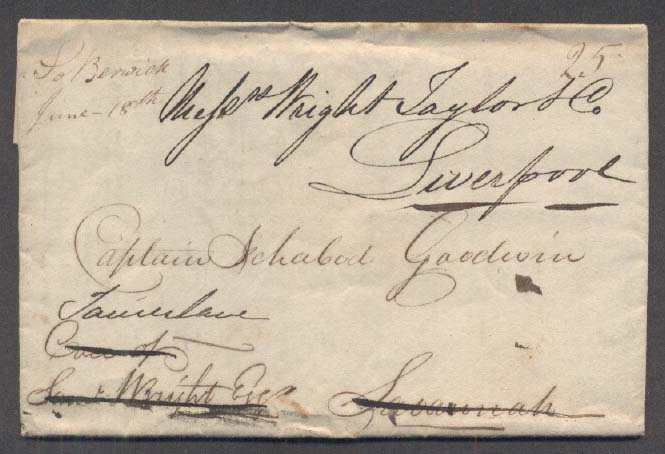 So Berwick 25
June 18th
Messrs Wright Taylor & Co.
Liverpool
Captain Ichabod Goodwin
Tamerlane
Care of
Saml Wright Esqr Savannah